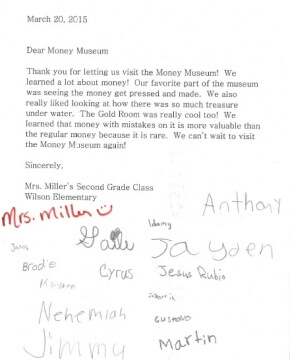 March 20, 2015
Dear Money Museum
Thank you for letting us visit the Money Museum! We
learned a lot about money! Our favorite part of the museum
was seeing the money get pressed and made. We also
really liked looking at how there was so much treasure
under water. The Gold Room was really cool too! We
learned that money with mistakes on it is more valuable than
the regular money because it is rare. We can't wait to visit
the Money Museum again!
Sincerely,
Mrs. Miller's Second Grade Class
Wilson Elementary
Mrs. Miller
Anthony
Jayden
Brodie
Cyrus
Jesus Rubio
Nehemiah
Gustavo
Jimmy
Martin